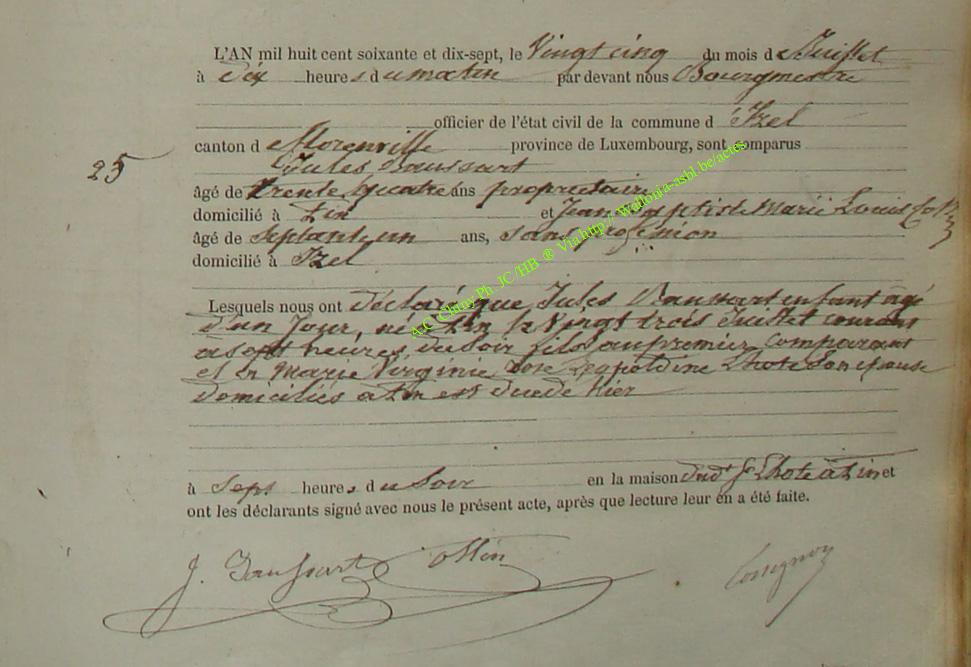 L'AN mil huit cent soixante et dix-sept, le Vingt cinq du mois de Juillet
à dix heures du matin par devant nous Bourgmestre
officier de l'état civil de la commune d'Izel
canton de Florenville province de Luxembourg, sont comparus
25
Jules Baussart
âgé de trente quatre ans propriétaire
domicilié à Zin et Jean Baptiste Marie Louis
âgé de Septante un ans, sans profession
domicilié à Izel
Lesquels nous ont déclaré que Jules Baussart enfant agé
d'un Jour, né à Zin le Vingt trois Juillet courant
à sept heures du Soir fils du premier Comparant
et de Marie Virginie Leopoldine Lhote Son epouse
domiciliés à Zin est décédé hier
à Sept heures du Soir en la maison dud. J Lhote à Zin et
ont les déclarants signé avec nous le présent acte, après que lecture leur en a été faite.
J. Baussart Ollin
A.C. Chiny Ph. JC/HB ® Via http://wallonia-asbl.be/actes